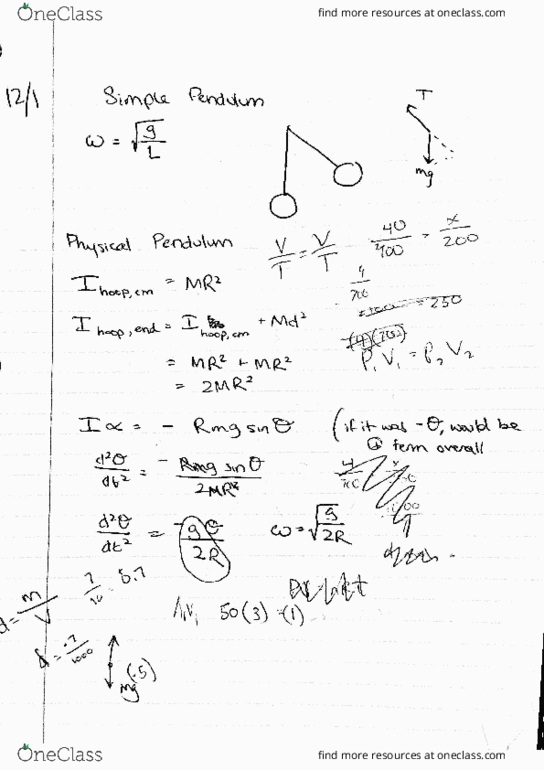 OneClass
find more resources at oneclass.com
12/1
Simple Pendulum
ω = √(g/L)
T
mg
Physical Pendulum
V/T = V/T
40/400 = x/200
I hoop,cm = MR²
= 250
I hoop,end = I hoop,cm + Md²
P₁V₁ = P₂V₂
= MR² + MR²
= 2MR²
Iα = - Rmg sinθ
(if it was -θ, would be
term overall
d²θ/dt² = -Rmg sinθ/2MR²
d²θ/dt² = -gθ/2R
ω = √(g/2R)
d = m/V
50(3) = (1)
.7/1000
mg (.5)
OneClass
find more resources at oneclass.com